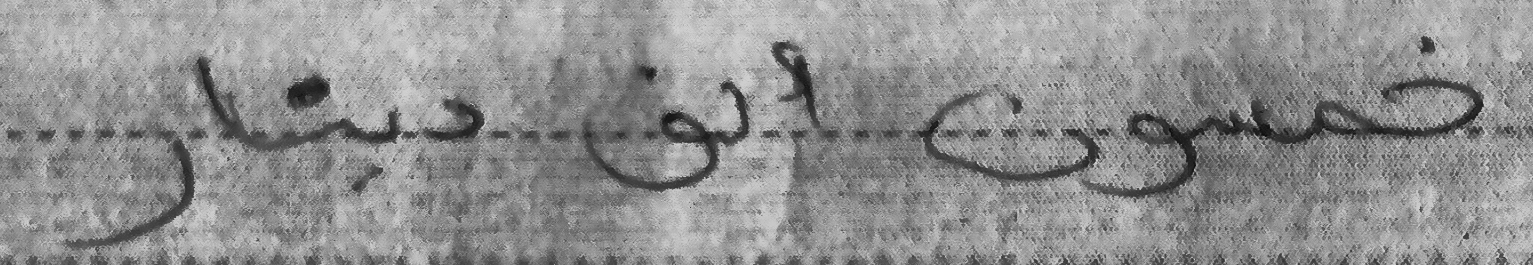 خمسون ألف دينار